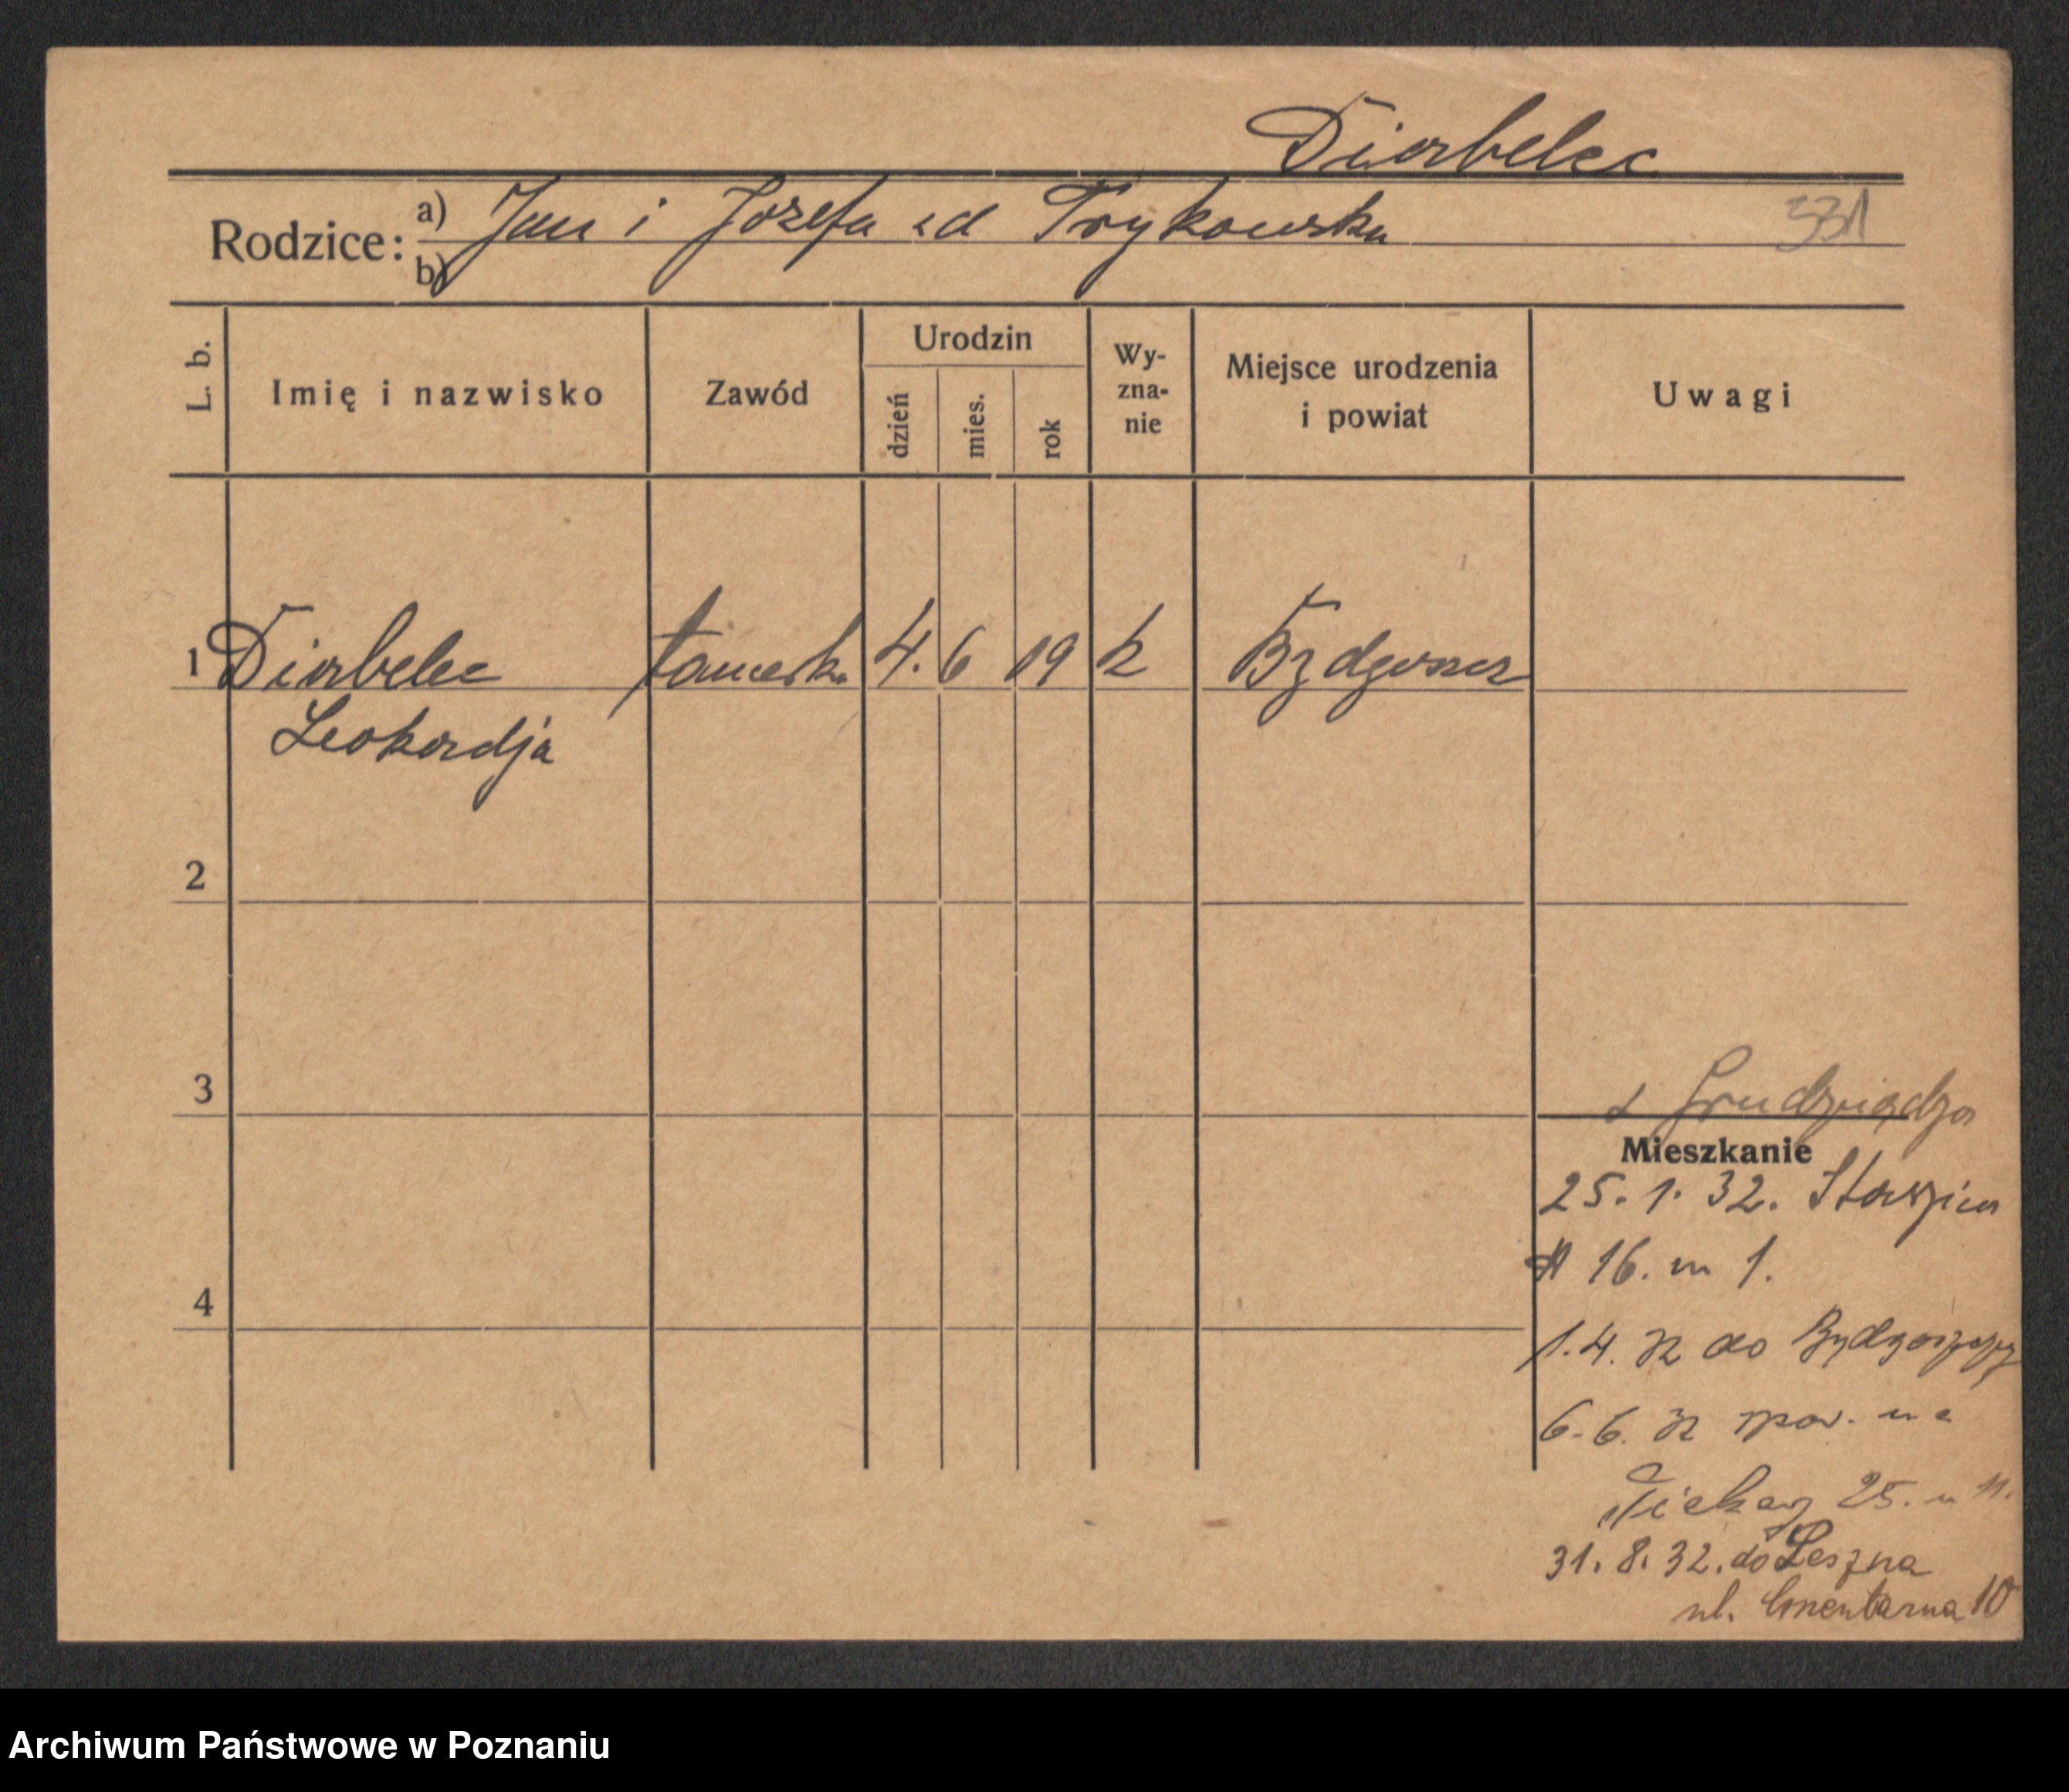 Diabelec
Rodzice: a) Jan i Józefa zd Trykowska 331
b)
L. b. Imię i nazwisko Zawód Urodzin dzień mies. rok Wy-zna-nie Miejsce urodzenia i powiat Uwagi
1 Diabelec tancerk. 4. 6 19 k Bydgoszcz
Leokardja
2
3
z Grudziądza
Mieszkanie
25. 1. 32. Staszica
16. m 1.
4
1.4. 32 do Bydgoszczy
6.6. 32 pow. na
Piekary 25. m 11.
31. 8. 32. do Leszna
ul. Cmentarna 10
Archiwum Państwowe w Poznaniu